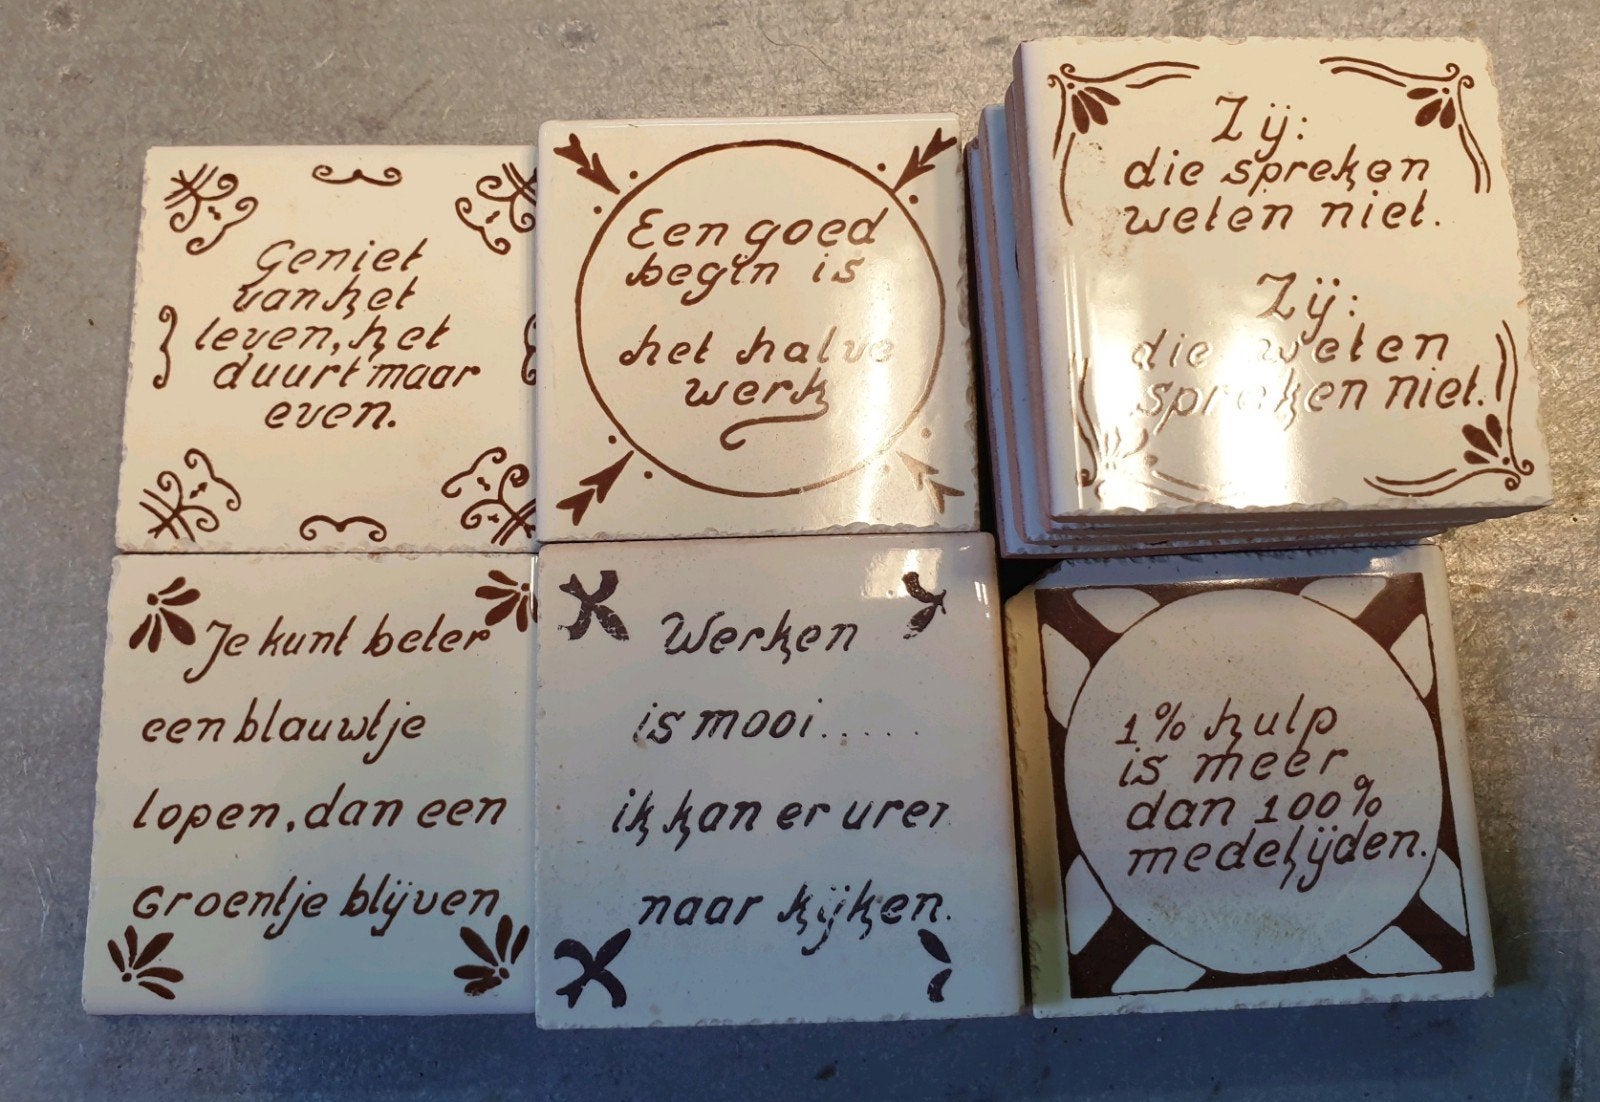 Geniet
van het
leven, het
duurt maar
even.
Een goed
begin is
het halve
werk
Zij:
die spreken
weten niet.
Zij:
die weten
spreken niet.
Je kunt beter
een blauwtje
lopen, dan een
Groentje blijven
Werken
is mooi......
ik kan er uren
naar kijken.
1% hulp
is meer
dan 100%
medelijden.